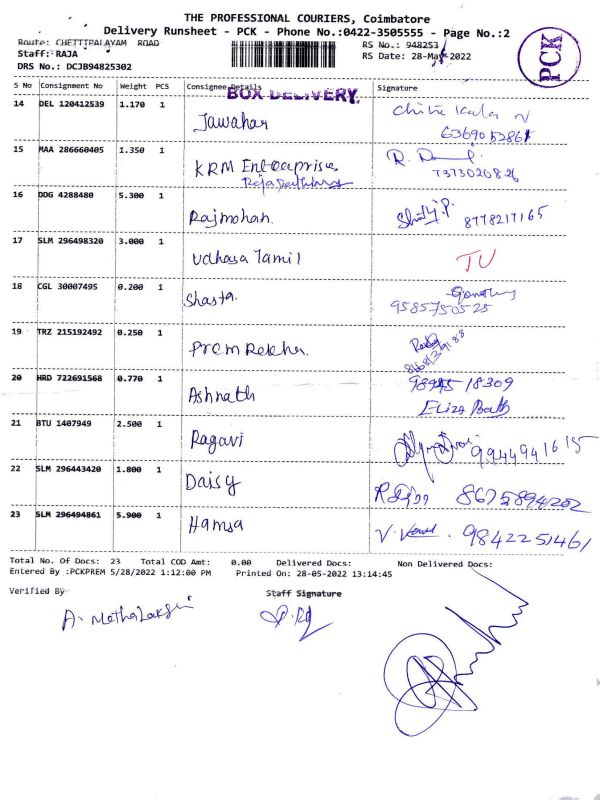 THE PROFESSIONAL COURIERS, Coimbatore
Delivery Runsheet - PCK - Phone No.:0422-3505555 - Page No.:2
Route: CHETTIPALAYAM ROAD
RS No.: 948253
Staff: RAJA
RS Date: 28-May-2022
DRS No.: DCJB94825302
PCK
S No Consignment No Weight PCS Consignee Details Signature
BOX DELIVERY
14 DEL 120412539 1.170 1 Jawahar
15 MAA 286660405 1.350 1 KRM Enterprises
R. 7373020826
16 DDG 4288480 5.300 1 Rajmohan 8778217165
17 SLM 296498320 3.000 1 Udhasa Tamil TU
18 CGL 30007495 0.200 1 Shasta.
9585750525
19 TRZ 215192492 0.250 1 Prem Rekha.
20 HRD 722691568 0.770 1 Ashnath
21 BTU 1407949 2.500 1 Ragavi
22 SLM 296443420 1.800 1 Daisy 8675894202
23 SLM 296494861 5.900 1 Hamsa 9842251461
Total No. Of Docs: 23 Total COD Amt: 0.00 Delivered Docs: Non Delivered Docs:
Entered By :PCKPREM 5/28/2022 1:12:00 PM Printed On: 28-05-2022 13:14:45
Verified By Staff Signature